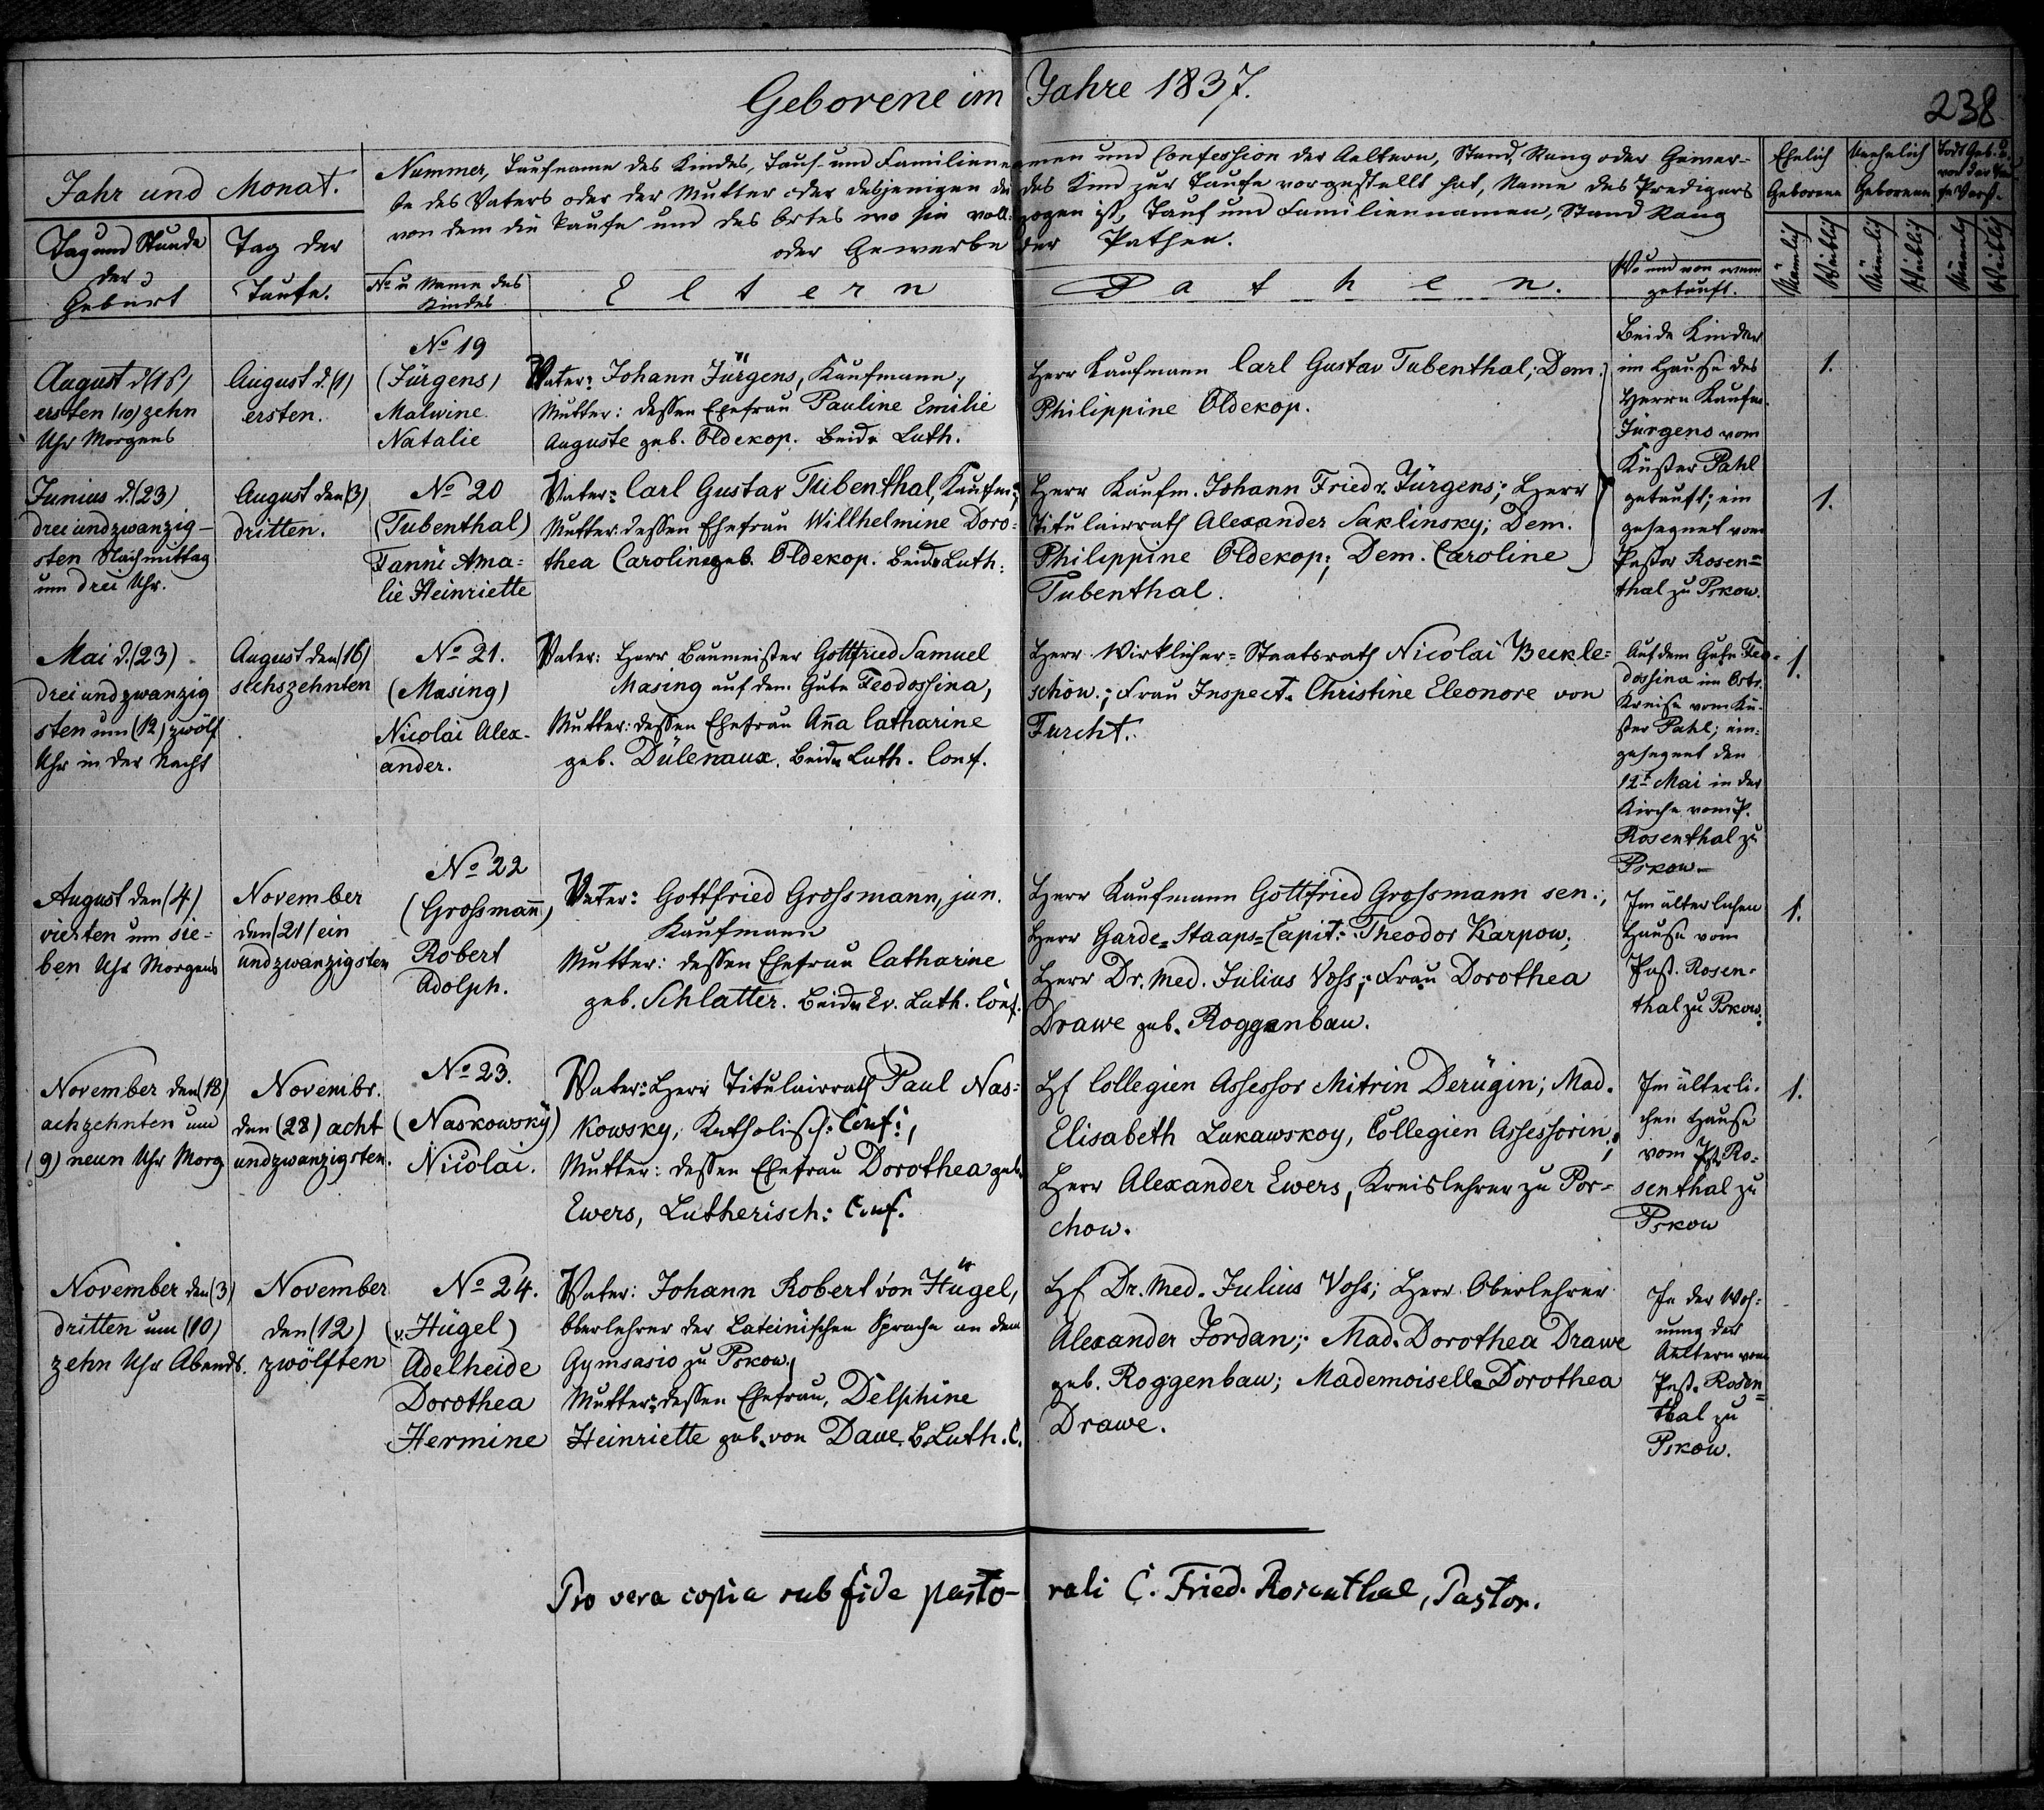 Geborene im Jahre 1837.
238
Jahr und Monat.
Tag und Stunde
der
Geburt
Tag der
Taufe.
Nummer, Taufname des Kindes, Tauf- und Familiennamen und Confession der Aeltern, Stand, Rang oder Gewer-
be des Vaters oder der Mutter oder desjenigen der das Kind zur Taufe vorgestellt hat, Name des Predigers
von dem die Taufe und des Ortes wo sie vollzogen ist, Tauf und Familiennamen, Stand Rang
oder Gewerbe der Pathen.
No u Name des
Kindes
Eltern
Pathen.
Wo und von wem
getauft.
Ehelich
Geborene
Unehelich
Geborenen
Todt Geb. u.
vor der Tau-
fe Verst.
Männlich
Weiblich
Männlich
Weiblich
Männlich
Weiblich
August d. (1s)
ersten (10) zehn
Uhr Morgens
August d. (1)
ersten.
No 19
(Jürgens)
Malwine
Natalie
Vater: Johann Jürgens, Kaufmann,
Mutter: dessen Ehefrau Pauline Emilie
Auguste geb. Oldekop. Beide Luth.
Herr Kaufmann Carl Gustav Tubenthal; Dem.
Philippine Oldekop.
Beide Kinder
im Hause des
Herrn Kaufm.
Jürgens vom
Küster Pahl
getauft; ein
gesegnet vom
Pastor Rosen=
thal zu Pskow.
1.
Junius d. (23)
drei und zwanzig-
sten Nachmittag
um drei Uhr.
August den (3)
dritten.
No 20
(Tubenthal)
Fanni Ama=
lie Heinriette
Vater: Carl Gustav Tubenthal, Kaufm;
Mutter: dessen Ehefrau Willhelmine Doro=
thea Caroline geb. Oldekop. Beide Luth:
Herr Kaufm. Johann Friedr. Jürgens; Herr
Titulairrath Alexander Saklinsky; Dem.
Philippine Oldekop; Dem. Caroline
Tubenthal.
1.
Mai d. (23)
drei und zwanzig
sten um (12) zwölf
Uhr in der Nacht
August den (16)
sechszehnten
No 21.
(Masing)
Nicolai Alex-
ander.
Vater: Herr Baumeister Gottfried Samuel
Masing auf dem Gute Feodossina,
Mutter: dessen Ehefrau Anna Catharine
geb. Dülenaux. Beide Luth. Conf.
Herr Wirklicher=Staatsrath Nicolai Beekle=
schow.; Frau Inspect. Christine Eleonore von
Furcht.
Auf dem Gute Feo-
dossina im Ostr.
Kreise vom Kü-
ster Pahl; ein=
gesegnet den
12t Mai in der
Kirche vom P.
Rosenthal zu
Pskow.
1.
August den (4)
vierten um sie=
ben Uhr Morgens
November
den (21) ein
undzwanzigsten
No 22
(Grossmann)
Robert
Adolph.
Vater: Gottfried Grossmann, jun.
Kaufmann
Mutter: dessen Ehefrau Catharine
geb. Schlatter. Beide Ev. Luth. Conf.
Herr Kaufmann Gottfried Grossmann sen.;
Herr Garde=Staaps=Capit: Theodor Karpow;
Herr Dr. med. Julius Voss; Frau Dorothea
Drawe geb. Roggenbau.
Im älterlichen
Hause vom
Past. Rosen-
thal zu Pskow.
1.
November den (18)
achzehnten um
(9) neun Uhr Morg
Novembr.
den (28) acht
undzwanzigsten.
No 23.
(Naskowsky)
Nicolai.
Vater: Herr Titulairrath Paul Nas=
kowsky, Katholisch: Conf:,
Mutter: dessen Ehefrau Dorothea geb.
Ewers, Lutherisch: Conf.
Hr Collegien Assessor Mitrin Derügin; Mad.
Elisabeth Lukawskoy, Collegien Assessorin;
Herr Alexander Ewers, Kreislehrer zu Por=
chow.
Im älterli-
chen Hause
vom Pst Ro=
senthal zu
Pskow
1.
November den (3)
dritten um (10)
zehn Uhr Abends.
November
den (12)
zwölften
No 24.
(v. Hügel)
Adelheide
Dorothea
Hermine
Vater: Johann Robert von Hügel,
Oberlehrer der Lateinischen Sprache an dem
Gymnasio zu Pskow,
Mutter: dessen Ehefrau, Delphine
Heinriette geb. von Daue. B. Luth. C.
Hr Dr. Med. Julius Voss; Herr Oberlehrer
Alexander Jordan; Mad. Dorothea Drawe
geb. Roggenbau; Mademoiselle Dorothea
Drawe.
In der Woh=
nung der
Aeltern vom
Past. Rosen=
thal zu
Pskow.
Pro vera copia sub fide pastorali C. Fried. Rosenthal, Pastor.